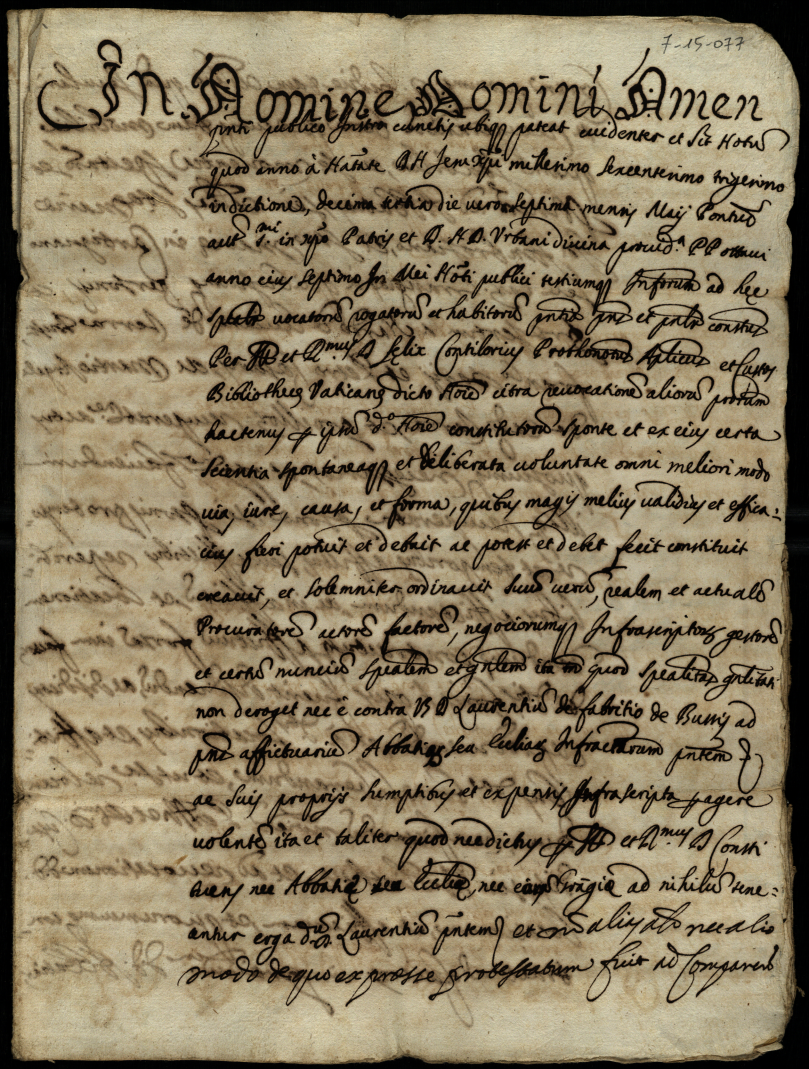 7-15-077
In Nomine Domini Amen
pnti publico Instro cunctis ubiq pateat evidenter et sit Notũ
quod anno à Natte D N Jesu Xpi millesimo sexcentesimo trigesimo
indictione, decima tertia die verò septima mensis Maij Pontus
aut smi in xpo Patris et D. N D. Urbani divina provid.a PP octavi
anno eius septimo In Mei Noti publici testiumq Infrorum ad hec
spealr vocatorũ rogatorũ et habitorũ pntia pns et pnlr constus
Per Ill et Rmus D felix Contilorius Prothonotus Aplicus et Custos
Bibliothecę Vaticanę dicto Noie citra revocationẽ aliorũ prorum
hactenus p ipsũ d.o Noie constitutorũ sponte et ex eius certa
scientia spontaneaq et deliberata voluntate omni meliori modo
via, iure, causa, et forma, quibus magis melius validius et effica=
cius fieri potuit et debuit ac potest et debet fecit constituit
creavit, et solemniter ordinavit suũ verũ, realem et actualẽ
Procuratorẽ actorẽ factorẽ, negociorumq Infrascriptorũ gestorẽ
et certũ nunciũ spealem et gnlem ita tñ quod spealitas gnlitati
non deroget nec è contra VD D Laurentiũ de fabritio de Bussis ad
pns affictuariũ Abbatię sea Eccliaę Infrarum pntem
ac suis proprijs sumptibus et expensis Infrascripta pagere
volentẽ ita et taliter quod nec dictus Ill et Rmus D Consti
tuens nec Abbatię sea Eccliaę, nec ad nihilũ tene=
antur erga dum Laurentiũ pntem et nõ alias alr nec alio
modo de quo expresse protestatum fuit ad Comparend